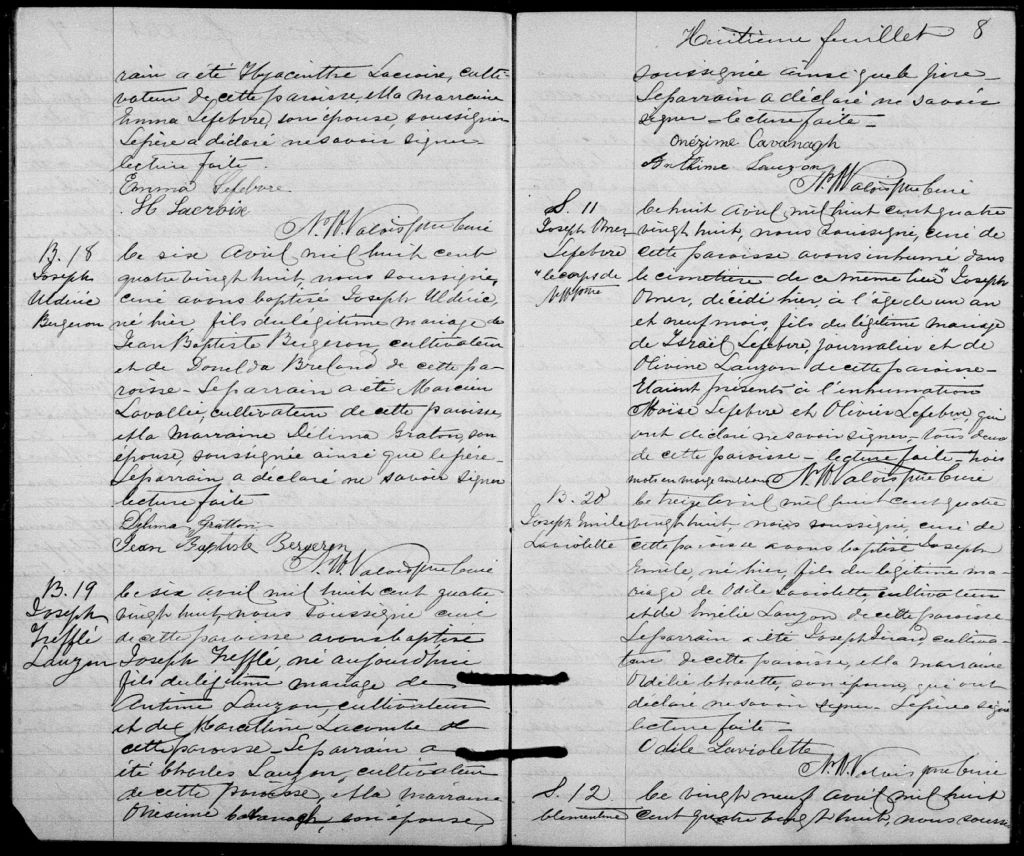 rain a été Hyacinthe Lacroix, culti-
vateur de cette paroisse, et la marraine
Emma Lefebvre, son épouse, soussignée
Le père a déclaré ne savoir signer
lecture faite.
Emma Lefebvre
H Lacroix
N. W. Valois ptre curé
B. 18
Joseph
Uldéric
Bergeron
Le six avril mil huit cent
quatre vingt huit, nous soussigné,
curé avons baptisé Joseph Uldéric,
né hier, fils du légitime mariage de
Jean Baptiste Bergeron, cultivateur
et de Donelda Breland de cette pa-
roisse - Le parrain a été
Lavallée, cultivateur de cette paroisse
et la marraine Délima Graton, son
épouse, soussignée ainsi que le père
Le parrain a déclaré ne savoir signer
lecture faite
Délima Gratton
Jean Baptiste Bergeron
N. W. Valois ptre curé
B. 19
Joseph
Trefflé
Lauzon
Le six avril mil huit cent quatre
vingt huit, nous soussigné curé
de cette paroisse avons baptisé
Joseph Trefflé, né aujourd'hui
fils du légitime mariage de
Antime Lauzon, cultivateur
et de Marcelline Lacombe de
cette paroisse - Le parrain a
été Charles Lauzon, cultivateur
de cette paroisse, et la marraine
Onésime Cavanagh, son épouse,
Huitième feuillet 8
soussignée ainsi que le père -
Le parrain a déclaré ne savoir
signer - lecture faite -
Onézime Cavanagh
Anthime Lauzon
N. W. Valois ptre curé
S. 11
Joseph Omer
Lefebvre
"le corps de
Le huit avril mil huit cent quatre
vingt huit, nous soussigné, curé de
cette paroisse avons inhumé dans
le cimetière de ce même lieu" Joseph
Omer, décédé hier, à l'âge de un an
et neuf mois, fils du légitime mariage
de Israël Lefebvre, journalier et de
Olivine Lauzon de cette paroisse -
Etaient présents à l'inhumation
Moïse Lefebvre et Olivier Lefebvre qui
ont déclaré ne savoir signer - tous deux
de cette paroisse - lecture faite - trois
mots en marge N. W. Valois ptre curé
B. 20
Joseph Emile
Laviolette
Le treize avril mil huit cent quatre
vingt huit - nous soussigné, curé de
cette paroisse avons baptisé Joseph
Emile, né hier, fils du légitime ma-
riage de Odile Laviolette, cultivateur
et de Emélie Lauzon de cette paroisse
Le parrain a été Joseph Girard, cultiva-
teur de cette paroisse, et la marraine
son épouse, qui ont
déclaré ne savoir signer - Le père a signé
lecture faite -
Odile Laviolette
N. W. Valois ptre curé
S. 12
Clémentine
Le vingt neuf avril mil huit
cent quatre vingt huit, nous soussi-